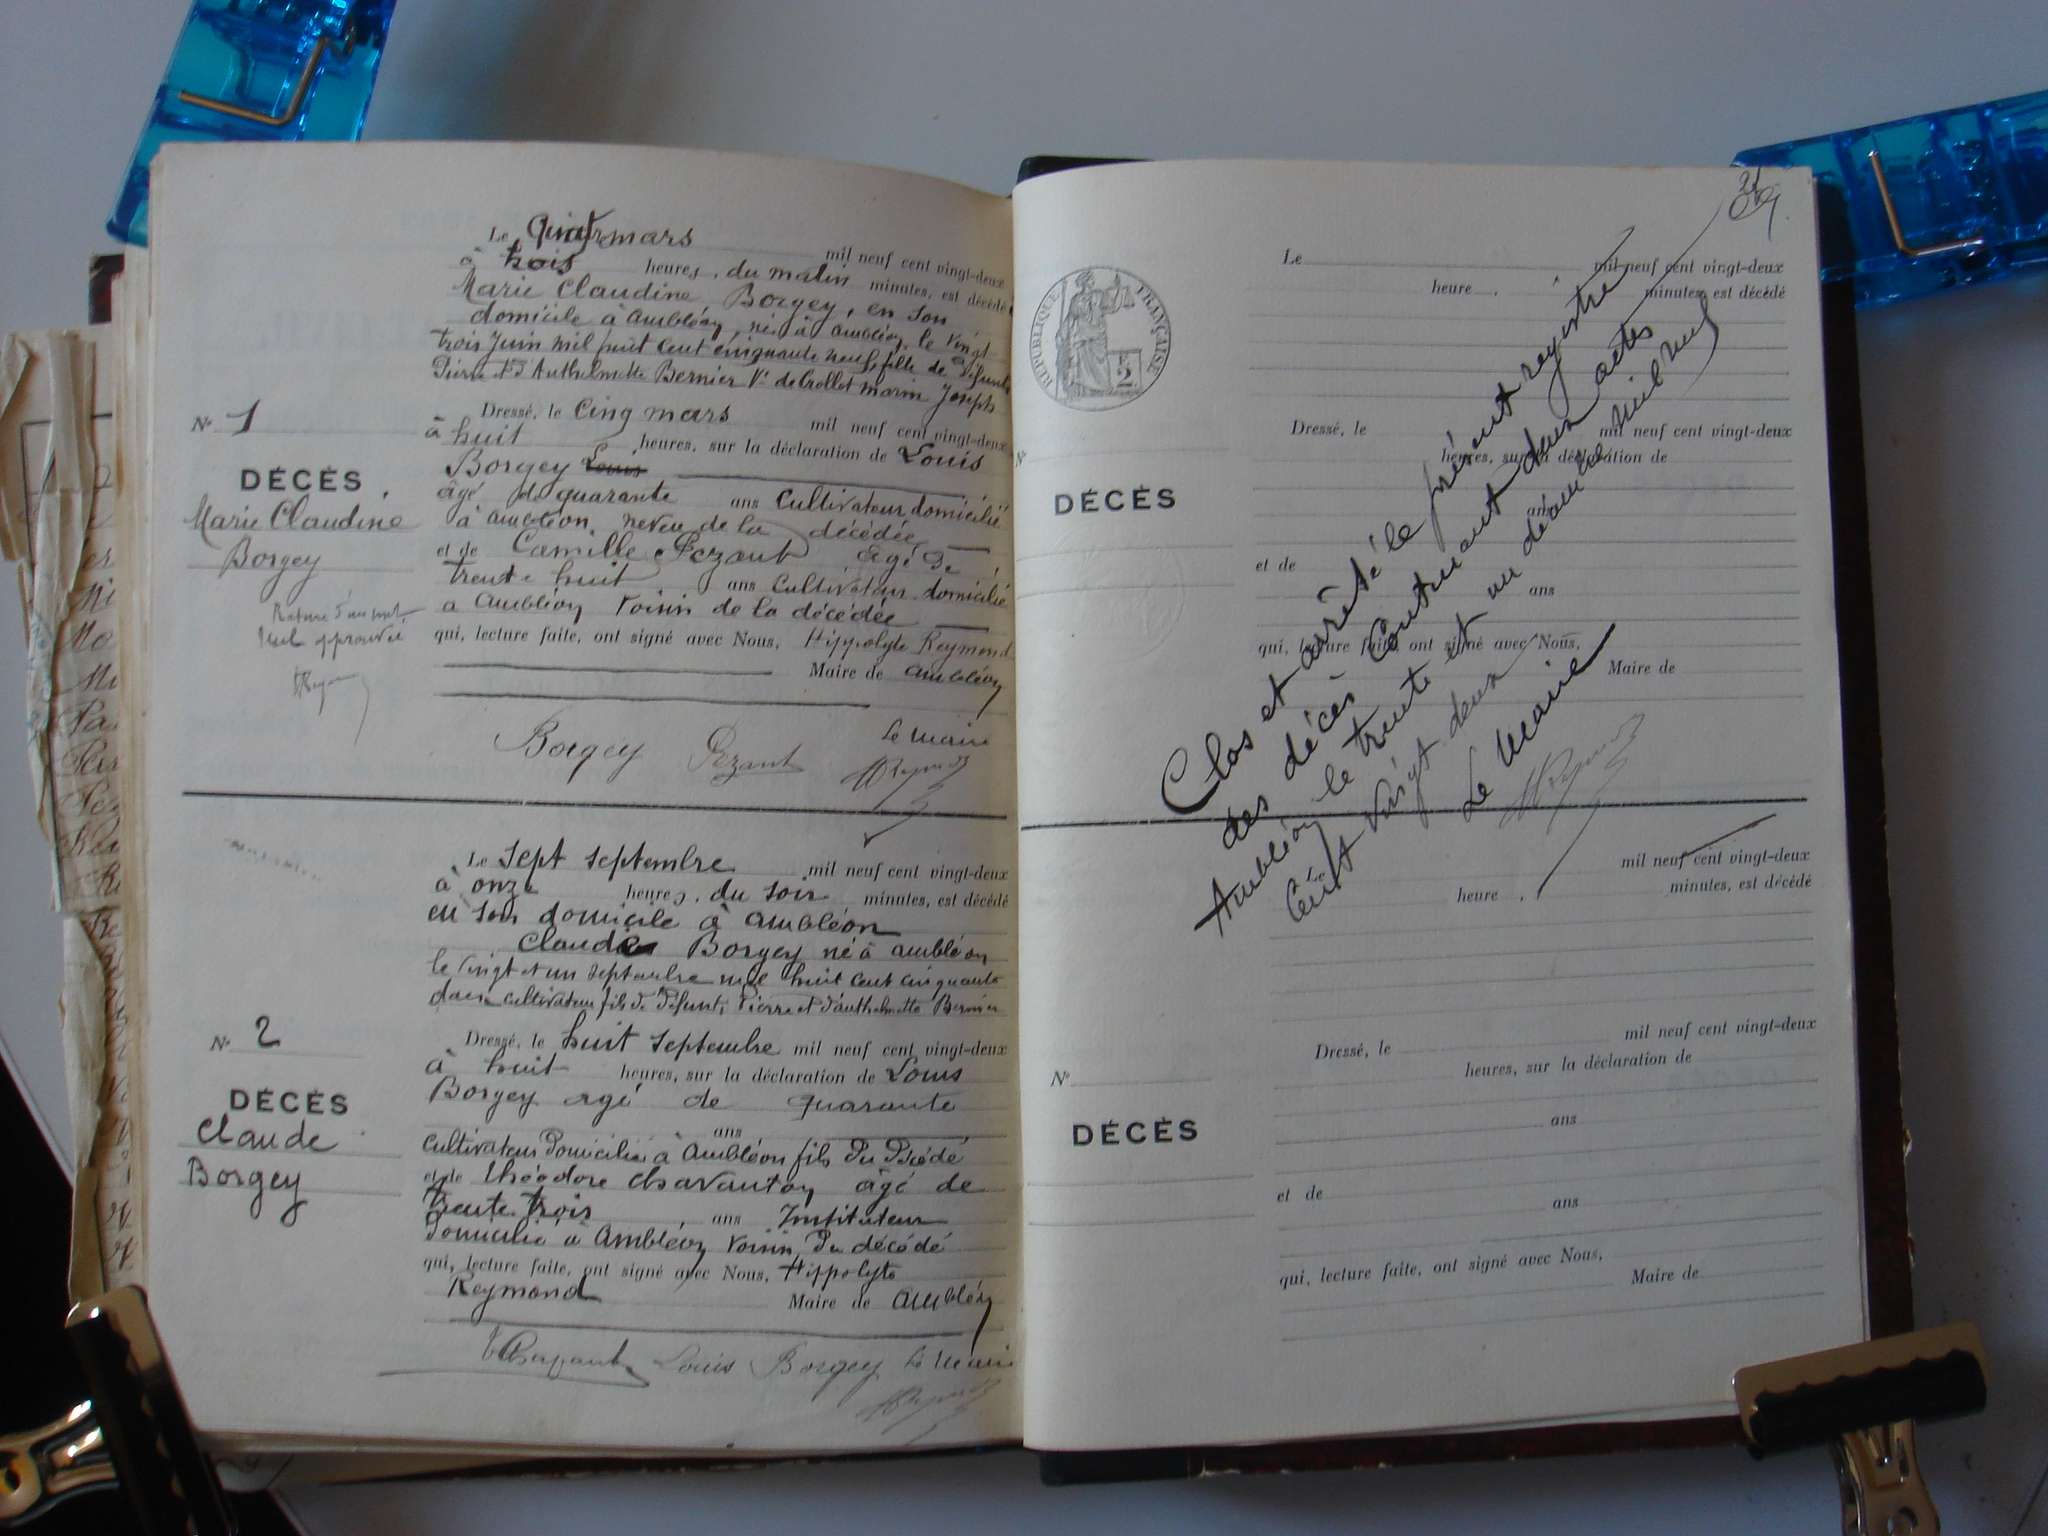 Le quatre mars mil neuf cent vingt-deux
à trois heures, du matin minutes, est décédé
Marie Claudine Borgey, en son
domicile à Ambléon, née à Ambléon, le vingt
trois Juin mil huit cent cinquante neuf, fille de défunts
Pierre et d'Anthelmette Bernier Ve de Crollot marin Joseph
Nº 1
DÉCÈS
Marie Claudine
Borgey
Rature d'un mot
nul approuvée
HReymond
Dressé, le Cinq mars mil neuf cent vingt-deux
à huit heures, sur la déclaration de Louis
Borgey Louis
âgé de quarante ans Cultivateur domicilié
à Ambléon, neveu de la décédée
et de Camille Pezant âgé de
trente huit ans Cultivateur domicilié
a Ambléon voisin de la décédée
qui, lecture faite, ont signé avec Nous, Hippolyte Reymond
Maire de Ambléon
Borgey Pezant Le Maire
HReymond
Le sept septembre mil neuf cent vingt-deux
à onze heures, du soir minutes, est décédé
en son domicile à Ambléon
Claude Borgey né à Ambléon
le vingt et un septembre mil huit cent cinquante
deux cultivateur fils de défunts Pierre et d'anthelmette Bernier
Nº 2
DÉCÈS
Claude
Borgey
Dressé, le huit septembre mil neuf cent vingt-deux
à huit heures, sur la déclaration de Louis
Borgey agé de quarante
ans
cultivateur Domicilié à Ambléon fils Du Décédé
et de théodore Chavanton âgé de
trente trois ans Instituteur
Domicilié à Ambléon voisin Du décédé
qui, lecture faite, ont signé avec Nous, Hippolyte
Reymond Maire de Ambléon
Louis Borgey Le Maire
HReymond
RÉPUBLIQUE FRANÇAISE
Le mil neuf cent vingt-deux
heure , minutes, est décédé
Dressé, le mil neuf cent vingt-deux
heures, sur la déclaration de
Nº
DÉCÈS
ans
et de
ans
qui, lecture faite, ont signé avec Nous,
Maire de
Clos et arrêté le présent registre
des décès Contenant deux actes
Ambléon le trente et un décembre mil neuf
Cent vingt deux
Le Maire
HReymond
Le mil neuf cent vingt-deux
heure , minutes, est décédé
Dressé, le mil neuf cent vingt-deux
heures, sur la déclaration de
Nº
DÉCÈS
ans
et de
ans
qui, lecture faite, ont signé avec Nous,
Maire de